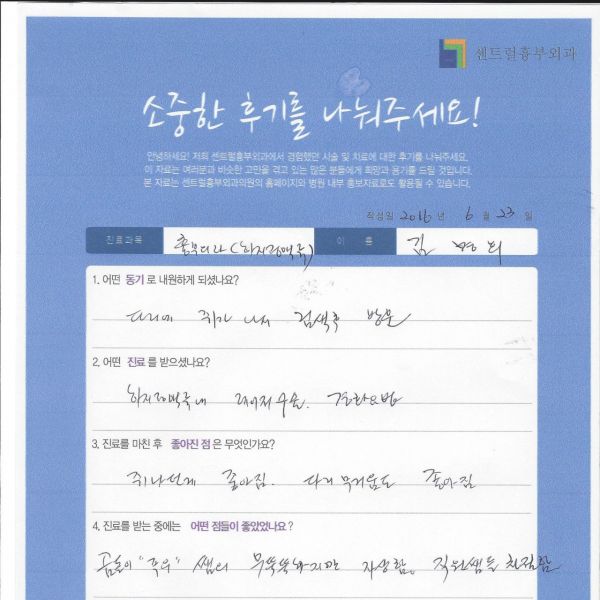 센트럴흉부외과
소중한 후기를 나눠주세요!
안녕하세요! 저희 센트럴흉부외과에서 경험했던 시술 및 치료에 대한 후기를 나눠주세요.
이 자료는 여러분과 비슷한 고민을 겪고 있는 많은 분들에게 희망과 용기를 드릴 것입니다.
본 자료는 센트럴흉부외과의원의 홈페이지와 병원 내부 홍보자료로도 활용될 수 있습니다.
작성일 2016년 6월 23일
진료과목 흉부외과(하지정맥류) 이 름 김
1. 어떤 동기로 내원하게 되셨나요?
다리에 쥐가 나서 검색후 방문
2. 어떤 진료를 받으셨나요?
하지정맥류 레이저수술.
3. 진료를 마친 후 좋아진 점은 무엇인가요?
쥐나는게 좋아짐. 다리 무거움도 좋아짐
4. 진료를 받는 중에는 어떤 점들이 좋았었나요?
쌤의 무뚝뚝하지만 자상함. 직원쌤들 친절함